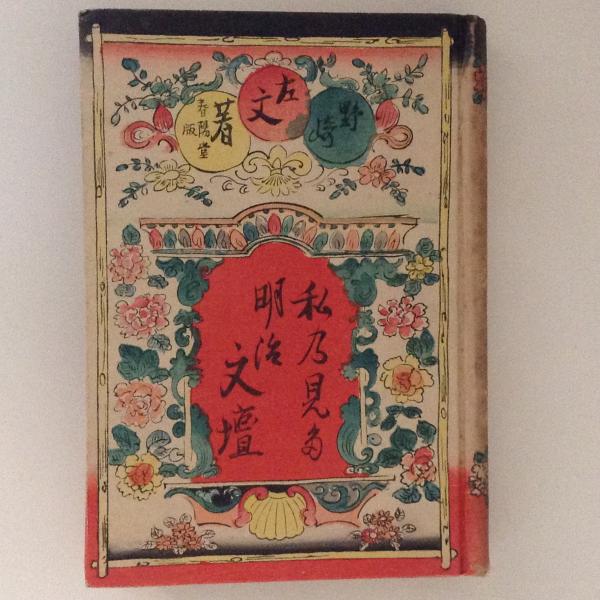 野崎
左文
著
春陽堂
版
私乃見た
明治
文壇